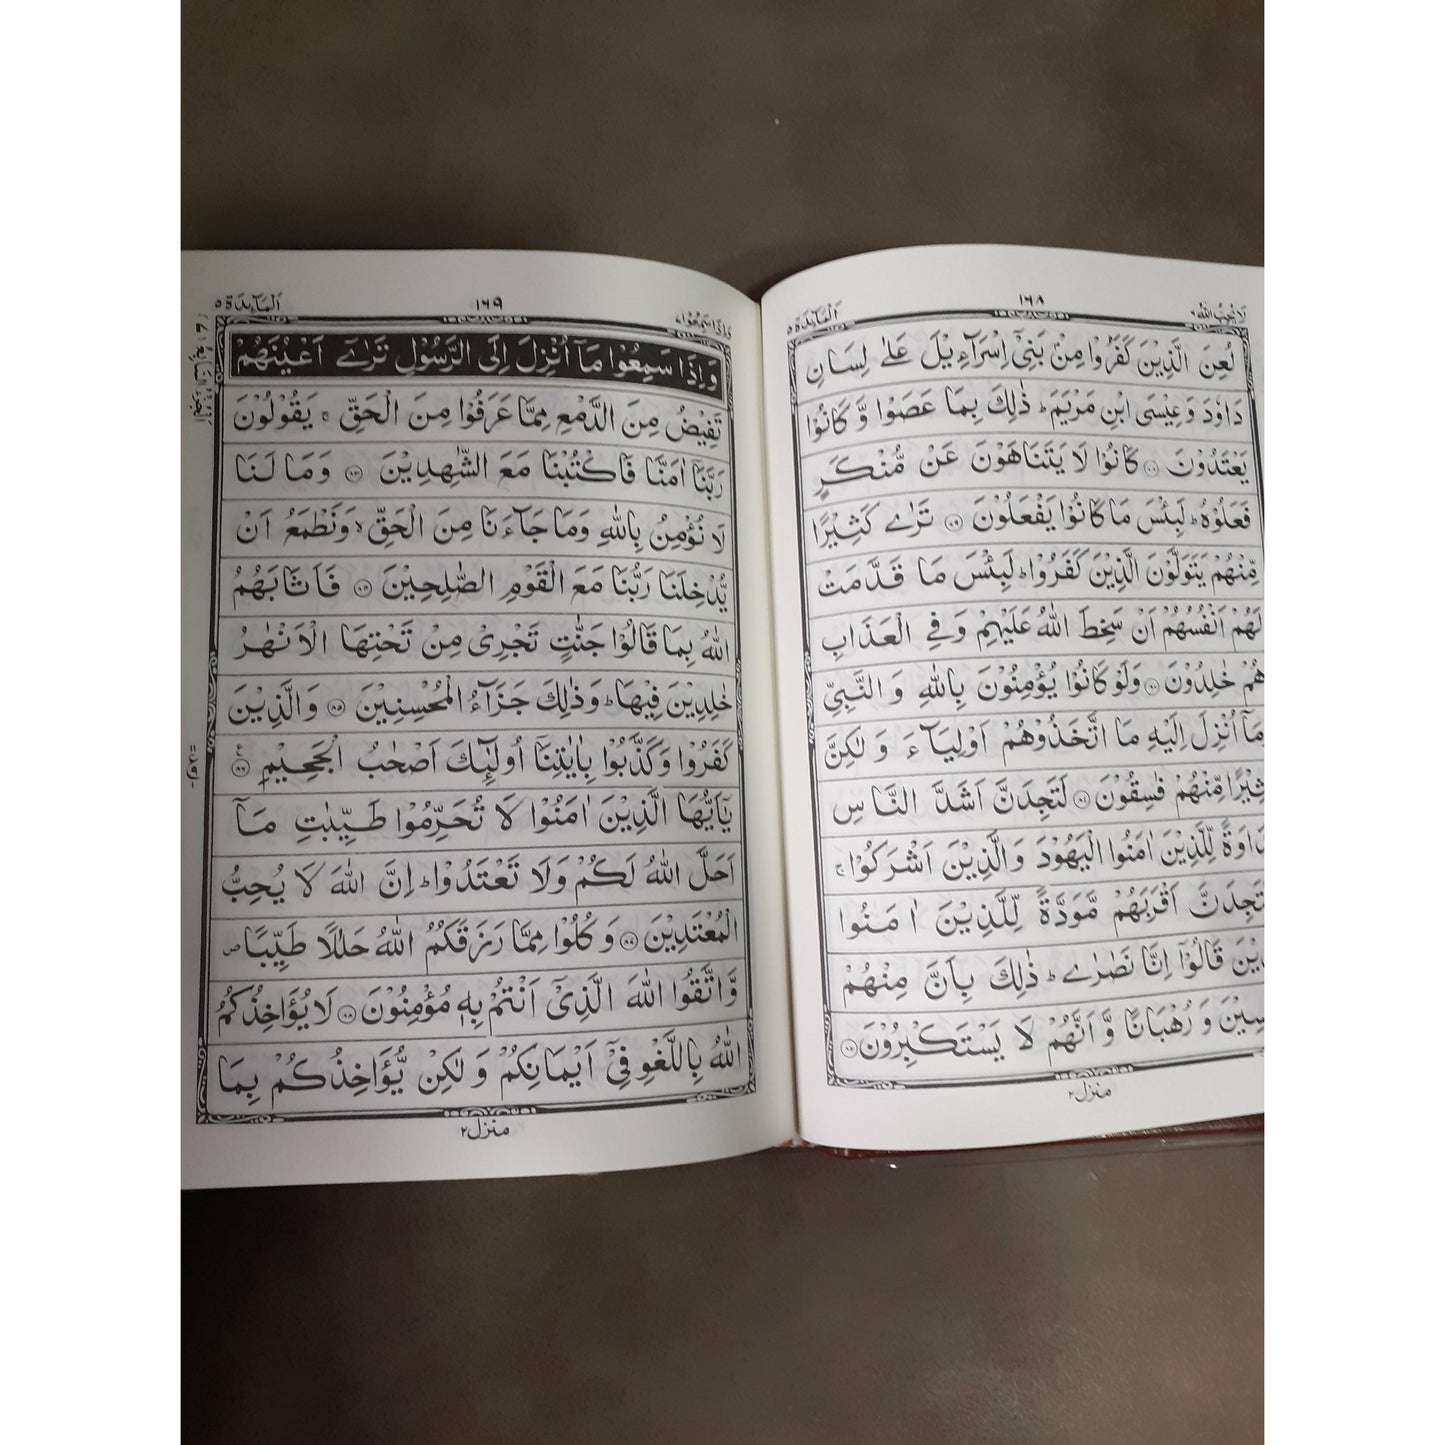 لَا يُحِبُّ اللّٰهُ ٦
١٦٨
اَلْمَآئِدَة ٥
لُعِنَ الَّذِيْنَ كَفَرُوْا مِنْۢ بَنِىْۤ اِسْرَآءِيْلَ عَلٰى لِسَانِ
دَاوٗدَ وَعِيْسَى ابْنِ مَرْيَمَ ؕ ذٰلِكَ بِمَا عَصَوْا وَّ كَانُوْا
يَعْتَدُوْنَ ﴿٧٨﴾ كَانُوْا لَا يَتَنَاهَوْنَ عَنْ مُّنْكَرٍ
فَعَلُوْهُ ؕ لَبِئْسَ مَا كَانُوْا يَفْعَلُوْنَ ﴿٧٩﴾ تَرٰى كَثِيْرًا
مِّنْهُمْ يَتَوَلَّوْنَ الَّذِيْنَ كَفَرُوْا ؕ لَبِئْسَ مَا قَدَّمَتْ
لَهُمْ اَنْفُسُهُمْ اَنْ سَخِطَ اللّٰهُ عَلَيْهِمْ وَ فِى الْعَذَابِ
هُمْ خٰلِدُوْنَ ﴿٨٠﴾ وَلَوْ كَانُوْا يُؤْمِنُوْنَ بِاللّٰهِ وَ النَّبِىِّ
مَاۤ اُنْزِلَ اِلَيْهِ مَا اتَّخَذُوْهُمْ اَوْلِيَآءَ وَ لٰكِنَّ
ثِيْرًا مِّنْهُمْ فٰسِقُوْنَ ﴿٨١﴾ لَتَجِدَنَّ اَشَدَّ النَّاسِ
دَاوَةً لِّلَّذِيْنَ اٰمَنُوا الْيَهُوْدَ وَ الَّذِيْنَ اَشْرَكُوْا ۚ
تَجِدَنَّ اَقْرَبَهُمْ مَّوَدَّةً لِّلَّذِيْنَ اٰمَنُوا
يْنَ قَالُوْۤا اِنَّا نَصٰرٰى ؕ ذٰلِكَ بِاَنَّ مِنْهُمْ
سِيْنَ وَ رُهْبَانًا وَّ اَنَّهُمْ لَا يَسْتَكْبِرُوْنَ ﴿٨٢﴾
منزل ٢
وَاِذَا سَمِعُوْا ٧
١٦٩
اَلْمَآئِدَة ٥
وَ اِذَا سَمِعُوْا مَاۤ اُنْزِلَ اِلَى الرَّسُوْلِ تَرٰۤى اَعْيُنَهُمْ
تَفِيْضُ مِنَ الدَّمْعِ مِمَّا عَرَفُوْا مِنَ الْحَقِّ ۚ يَقُوْلُوْنَ
رَبَّنَاۤ اٰمَنَّا فَاكْتُبْنَا مَعَ الشّٰهِدِيْنَ ﴿٨٣﴾ وَمَا لَنَا
لَا نُؤْمِنُ بِاللّٰهِ وَمَا جَآءَنَا مِنَ الْحَقِّ ۙ وَنَطْمَعُ اَنْ
يُّدْخِلَنَا رَبُّنَا مَعَ الْقَوْمِ الصّٰلِحِيْنَ ﴿٨٤﴾ فَاَثَابَهُمُ
اللّٰهُ بِمَا قَالُوْا جَنّٰتٍ تَجْرِىْ مِنْ تَحْتِهَا الْاَنْهٰرُ
خٰلِدِيْنَ فِيْهَا ؕ وَذٰلِكَ جَزَآءُ الْمُحْسِنِيْنَ ﴿٨٥﴾ وَالَّذِيْنَ
كَفَرُوْا وَكَذَّبُوْا بِاٰيٰتِنَاۤ اُولٰٓئِكَ اَصْحٰبُ الْجَحِيْمِ ﴿٨٦﴾ ع
يٰۤاَيُّهَا الَّذِيْنَ اٰمَنُوْا لَا تُحَرِّمُوْا طَيِّبٰتِ مَاۤ
اَحَلَّ اللّٰهُ لَكُمْ وَلَا تَعْتَدُوْا ؕ اِنَّ اللّٰهَ لَا يُحِبُّ
الْمُعْتَدِيْنَ ﴿٨٧﴾ وَ كُلُوْا مِمَّا رَزَقَكُمُ اللّٰهُ حَلٰلًا طَيِّبًا ص
وَّاتَّقُوا اللّٰهَ الَّذِىْۤ اَنْتُمْ بِهٖ مُؤْمِنُوْنَ ﴿٨٨﴾ لَا يُؤَاخِذُكُمُ
اللّٰهُ بِاللَّغْوِ فِىْۤ اَيْمَانِكُمْ وَ لٰكِنْ يُّؤَاخِذُكُمْ بِمَا
منزل ٢